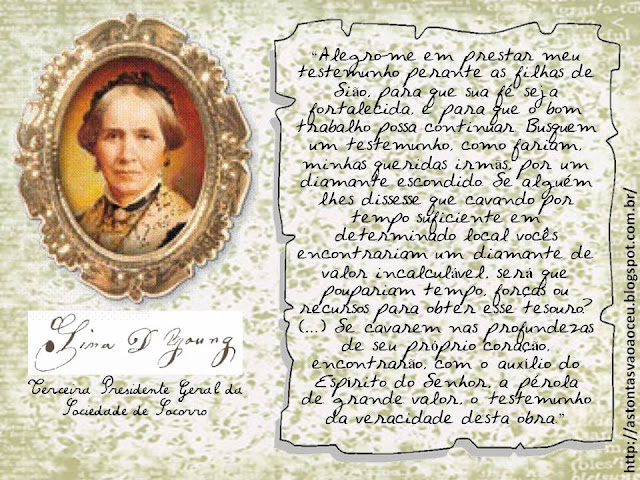 “Alegro-me em prestar meu
testemunho perante as filhas de
Sião, para que sua fé seja
fortalecida, e para que o bom
trabalho possa continuar. Busquem
um testemunho, como fariam,
minhas queridas irmãs, por um
diamante escondido. Se alguém
lhes dissesse que cavando por
tempo suficiente em
determinado local vocês
encontrariam um diamante de
valor incalculável, será que
poupariam tempo, forças ou
recursos para obter esse tesouro?
(...) Se cavarem nas profundezas
de seu próprio coração,
encontrarão, com o auxílio do
Espírito do Senhor, a pérola
de grande valor, o testemunho
da veracidade desta obra.”
Zina D Young
Terceira Presidente Geral da
Sociedade de Socorro
http://astontasvaoaoceu.blogspot.com.br/